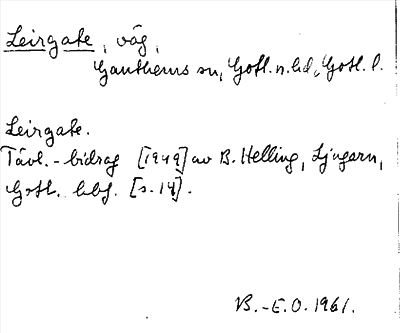 Leirgate, väg,
Ganthems sn, Gotl. n. hd, Gotl. l.
Leirgate.
Tävl.-bidrag [1949] av B. Helling, Ljugarn,
Gotl. [s. 14].
B.-E.O. 1961.